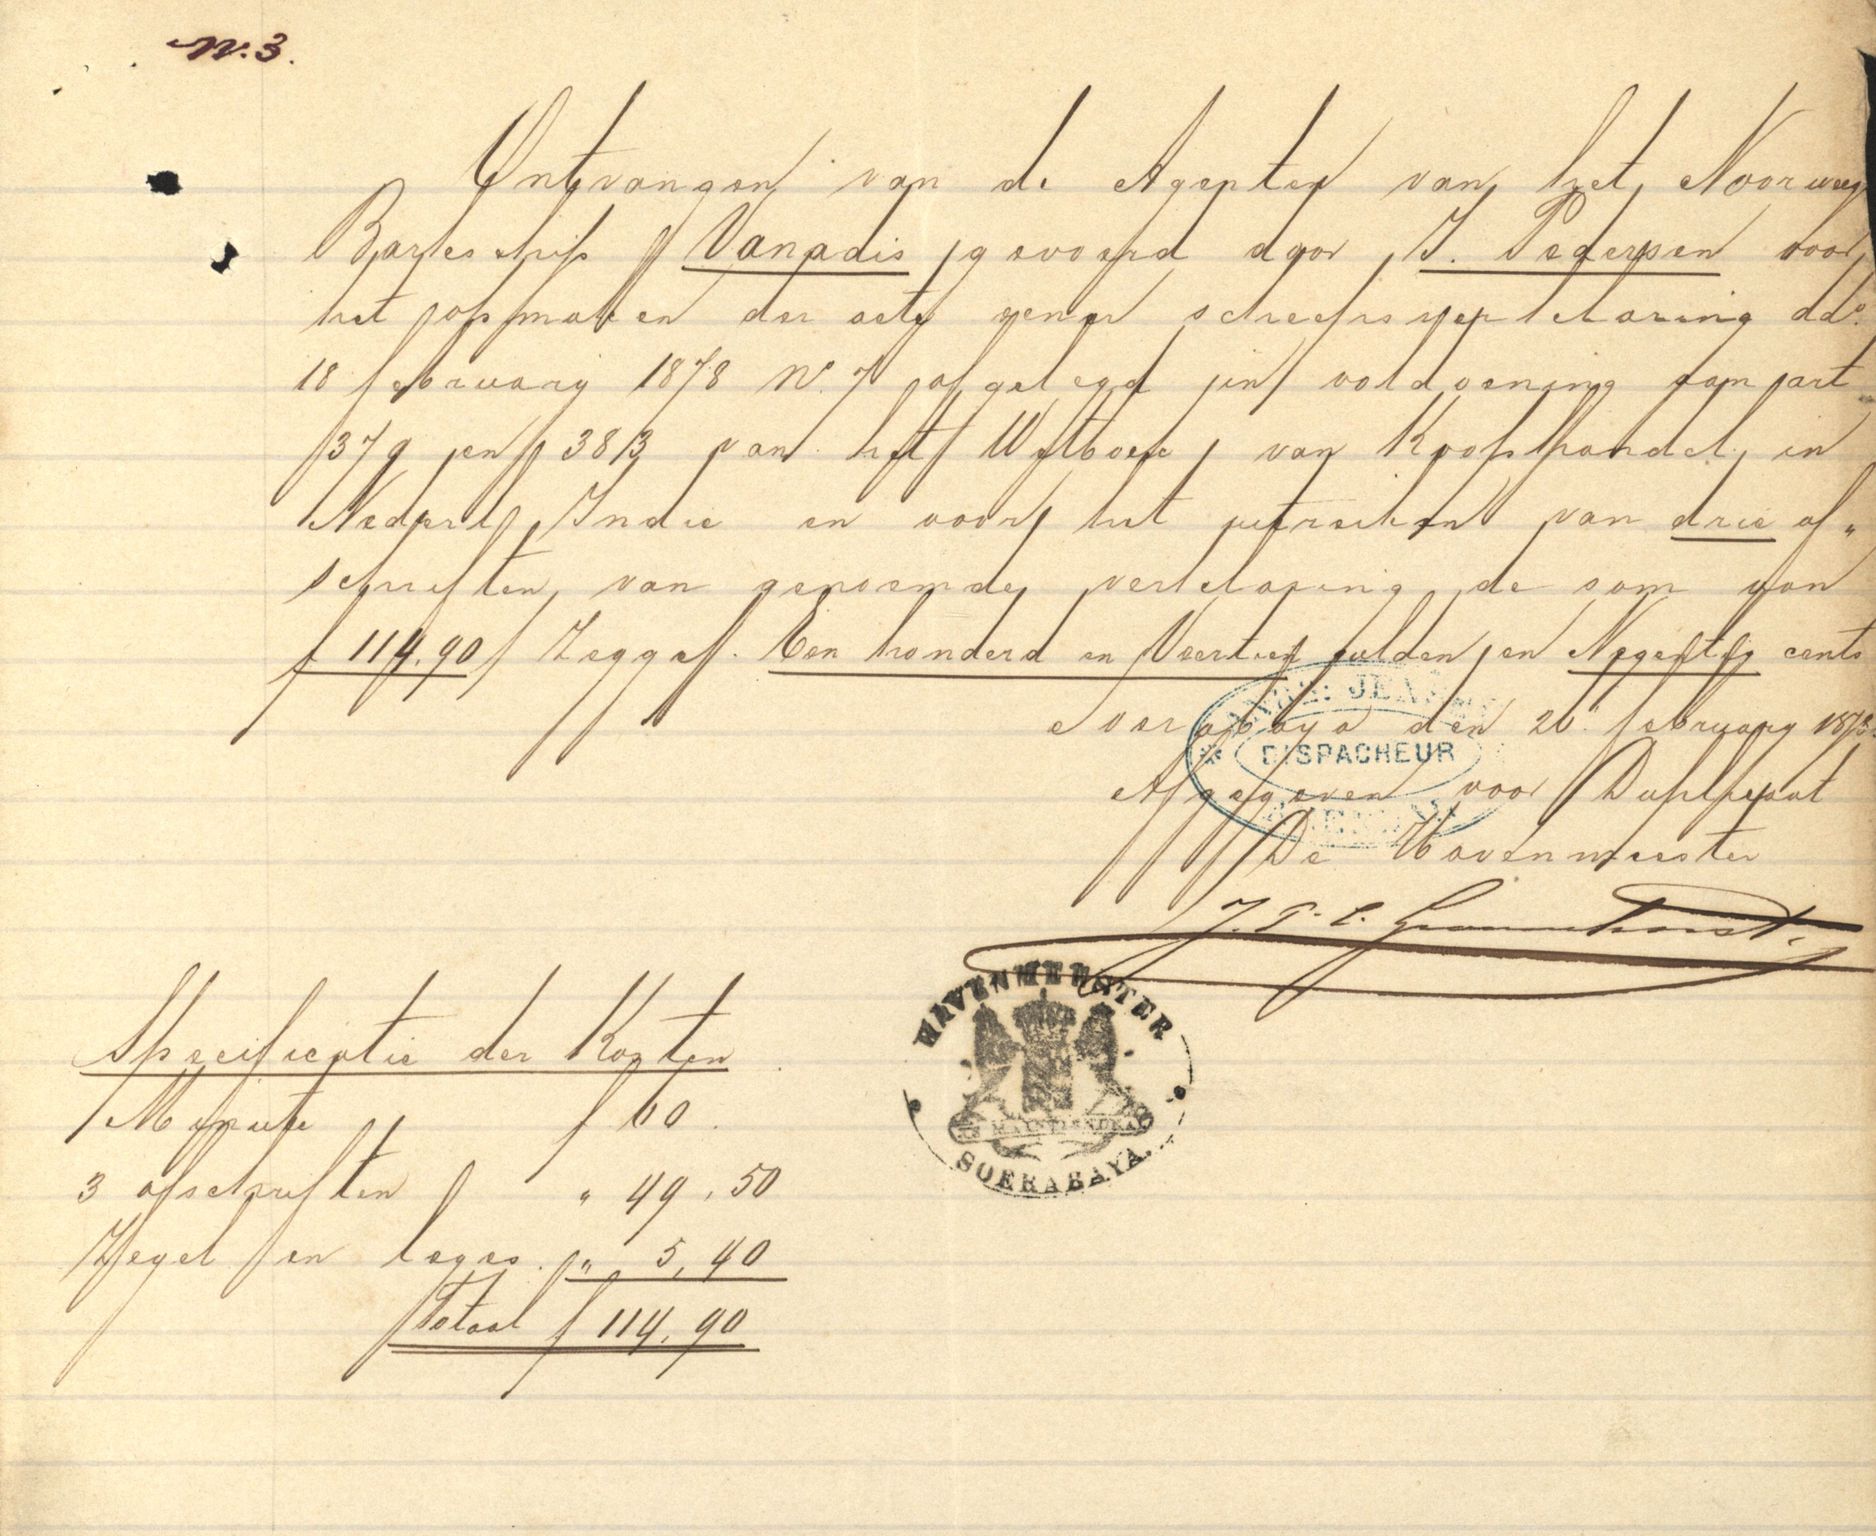 No. 3.
Ontvangen van de Agenten van het Noorweeg
Barkschip Vanadis gevoerd door J. Pedersen voor
het opmaken der acte eener scheepsverklaring ddo.
18 february 1878 No. 7 afgelegd in voldoening aan art
379 en 383 van het Wetboek van Koophandel in
Nederl Indie en voor het uitreiken van drie af„
schriften van genoemde verklaring de som van
f 114.90 Zegge f. Een honderd en Veertien gulden en Negentig cents
Soerabaya den 20 february 1878.
DISPACHEUR
Afgegeven voor Duplicaat
De Havenmeester
HAVENMEESTER
SOERABAYA.
Specificatie der Kosten
Minute f 60.
3 afschriften „ 49,50
Zegel en leges. „ 5,40
Totaal f 114,90